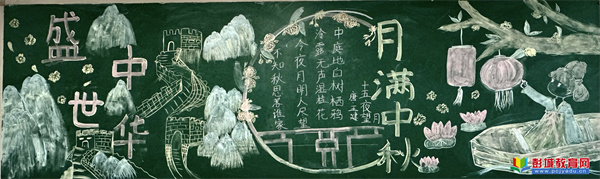 盛世
中华
十五夜望
唐 王建
中庭地白树栖鸦
冷露无声湿桂花
今夜月明人尽望
不知秋思落谁家
月满中秋
彭城教育网